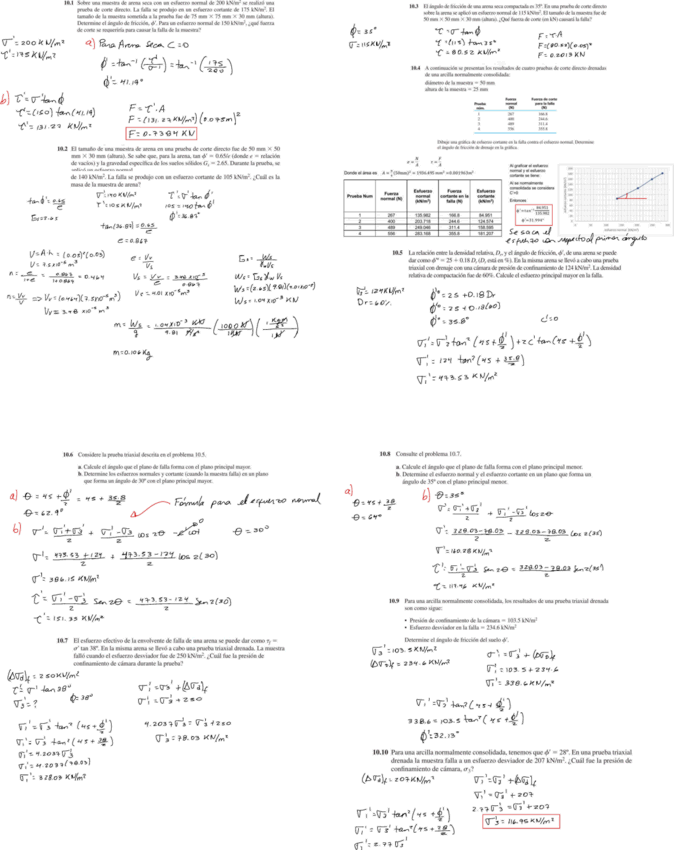 10.1 Sobre una muestra de arena seca con un esfuerzo normal de 200 kN/m² se realizó una
prueba de corte directo. La falla se produjo en un esfuerzo cortante de 175 kN/m². El
tamaño de la muestra sometida a la prueba fue de 75 mm × 75 mm × 30 mm (altura).
Determine el ángulo de fricción, ϕ'. Para un esfuerzo normal de 150 kN/m², ¿qué fuerza
de corte se requeriría para causar la falla de la muestra?
σ' = 200 KN/m²
τ' = 175 KN/m²
a) Para Arena Seca C=0
ϕ' = tan⁻¹(τ'/σ') = tan⁻¹(175/200)
ϕ' = 41.19°
b) τ' = σ' tan ϕ
τ' = (150) tan(41.19)
τ' = 131.27 KN/m²
F = τ'·A
F = (131.27 KN/m²)(0.075m)²
F = 0.7384 KN
10.2 El tamaño de una muestra de arena en una prueba de corte directo fue de 50 mm × 50
mm × 30 mm (altura). Se sabe que, para la arena, tan ϕ' = 0.65/e (donde e = relación
de vacíos) y la gravedad específica de los suelos sólidos Gs = 2.65. Durante la prueba, se
de 140 kN/m². La falla se produjo con un esfuerzo cortante de 105 kN/m². ¿Cuál es la
masa de la muestra de arena?
tan ϕ' = 0.65/e
Gs = 2.65
σ' = 140 KN/m²
τ' = 105 KN/m²
τ' = σ' tan ϕ'
105 = 140 tan ϕ'
ϕ' = 36.87°
tan(36.87) = 0.65/e
e = 0.867
V = A·h = (0.05)²(0.03)
V = 7.5x10⁻⁵ m³
e = Vv/Vs
Gs = Ws/γw Vs
n = e/1+e = 0.867/1+0.867 = 0.464
Vs = Vv/e = 3.48x10⁻⁵/0.867
Vs = 4.01x10⁻⁵ m³
Ws = Gs γw Vs
Ws = (2.65)(9.81)(4.01x10⁻⁵)
Ws = 1.043x10⁻³ KN
n = Vv/V ⇒ Vv = (0.464)(7.5x10⁻⁵ m³)
Vv = 3.48 x10⁻⁵ m³
m = 0.106 Kg
10.3 El ángulo de fricción de una arena seca compactada es 35°. En una prueba de corte directo
sobre la arena se aplicó un esfuerzo normal de 115 kN/m². El tamaño de la muestra fue de
50 mm × 50 mm × 30 mm (altura). ¿Qué fuerza de corte (en kN) causará la falla?
ϕ = 35°
σ = 115 KN/m²
τ = σ tan ϕ
τ = (115) tan 35°
τ = 80.52 KN/m²
F = τ·A
F = (80.52)(0.05)²
F = 0.2013 KN
10.4 A continuación se presentan los resultados de cuatro pruebas de corte directo drenadas
de una arcilla normalmente consolidada:
diámetro de la muestra = 50 mm
altura de la muestra = 25 mm
Prueba núm. Fuerza normal (N) Fuerza de corte para la falla (N)
1 267 166.8
2 400 244.6
3 489 311.4
4 556 355.8
Dibuje una gráfica de esfuerzo cortante en la falla contra el esfuerzo normal. Determine
el ángulo de fricción de drenaje en la gráfica.
Prueba Num Fuerza normal (N) Esfuerzo normal (kN/m²) Fuerza cortante en la falla (N) Esfuerzo cortante (kN/m²)
1 267 135.982 166.8 84.951
2 400 203.718 244.6 124.574
3 489 249.046 311.4 158.595
4 556 283.168 355.8 181.207
Al graficar el esfuerzo
normal y el esfuerzo
cortante se tiene:
Al ser normalmente
consolidada se considera
C=0
Entonces:
Se saca el
esfuerzo con respecto al primer ángulo
10.5 La relación entre la densidad relativa, Dr, y el ángulo de fricción, ϕ', de una arena se puede
dar como ϕ'° = 25 + 0.18 Dr (Dr está en %). En la misma arena se llevó a cabo una prueba
triaxial con drenaje con una cámara de presión de confinamiento de 124 kN/m². La densidad
relativa de compactación fue de 60%. Calcule el esfuerzo principal mayor en la falla.
σ₃' = 124 KN/m²
Dr = 60%
ϕ'° = 25 + 0.18 Dr
ϕ'° = 25 + 0.18(60)
ϕ'° = 35.8°
c' = 0
σ₁' = σ₃' tan²(45 + ϕ'/2) + 2c' tan(45 + ϕ'/2)
σ₁' = 124 tan²(45 + 35.8/2)
σ₁' = 473.53 KN/m²
10.6 Considere la prueba triaxial descrita en el problema 10.5.
a. Calcule el ángulo que el plano de falla forma con el plano principal mayor.
b. Determine los esfuerzos normales y cortante (cuando la muestra falla) en un plano
que forma un ángulo de 30° con el plano principal mayor.
a) θ = 45 + ϕ'/2 = 45 + 35.8/2
θ = 62.9°
Fórmula para el esfuerzo normal
b) σ' = σ₁'+σ₃'/2 + σ₁'-σ₃'/2 cos 2θ
θ = 30°
σ' = 473.53+124/2 + 473.53-124/2 cos 2(30)
σ' = 386.15 KN/m²
τ' = σ₁'-σ₃'/2 Sen 2θ = 473.53-124/2 Sen 2(30)
τ' = 151.35 KN/m²
10.7 El esfuerzo efectivo de la envolvente de falla de una arena se puede dar como τf =
σ' tan 38°. En la misma arena se llevó a cabo una prueba triaxial drenada. La muestra
falló cuando el esfuerzo desviador fue de 250 kN/m². ¿Cuál fue la presión de
confinamiento de cámara durante la prueba?
(Δσd)f = 250 KN/m²
τ = σ' tan 38°
σ₃' = ?
ϕ = 38°
σ₁' = σ₃' + (Δσd)f
σ₁' = σ₃' + 250
σ₁' = σ₃' tan²(45 + ϕ'/2)
σ₁' = σ₃' tan²(45 + 38/2)
σ₁' = 4.2037 σ₃'
σ₁' = 4.2037 (78.03)
σ₁' = 328.03 KN/m²
4.2037 σ₃' = σ₃' + 250
σ₃' = 78.03 KN/m²
10.8 Consulte el problema 10.7.
a. Calcule el ángulo que el plano de falla forma con el plano principal menor.
b. Determine el esfuerzo normal y el esfuerzo cortante en un plano que forma un
ángulo de 35° con el plano principal menor.
a) θ = 45 + 38/2
θ = 64°
b) θ = 35°
σ' = 160.28 KN/m²
τ' = σ₁'-σ₃'/2 Sen 2θ = 328.03-78.03/2 Sen 2(35°)
τ' = 117.46 KN/m²
10.9 Para una arcilla normalmente consolidada, los resultados de una prueba triaxial drenada
son como sigue:
• Presión de confinamiento de la cámara = 103.5 kN/m²
• Esfuerzo desviador en la falla = 234.6 kN/m²
Determine el ángulo de fricción del suelo ϕ'.
σ₃' = 103.5 KN/m²
(Δσd)f = 234.6 KN/m²
σ₁' = σ₃' + (Δσd)f
σ₁' = 103.5 + 234.6
σ₁' = 338.6 KN/m²
σ₁' = σ₃' tan²(45 + ϕ'/2)
338.6 = 103.5 tan²(45 + ϕ'/2)
ϕ' = 32.13°
10.10 Para una arcilla normalmente consolidada, tenemos que ϕ' = 28°. En una prueba triaxial
drenada la muestra falla a un esfuerzo desviador de 207 kN/m². ¿Cuál fue la presión de
confinamiento de cámara, σ₃?
(Δσd)f = 207 KN/m²
σ₁' = σ₃' + (Δσd)f
σ₁' = σ₃' + 207
2.77 σ₃' = σ₃' + 207
σ₃' = 116.95 KN/m²
σ₁' = σ₃' tan²(45 + ϕ'/2)
σ₁' = σ₃' tan²(45 + 28/2)
σ₁' = 2.77 σ₃'